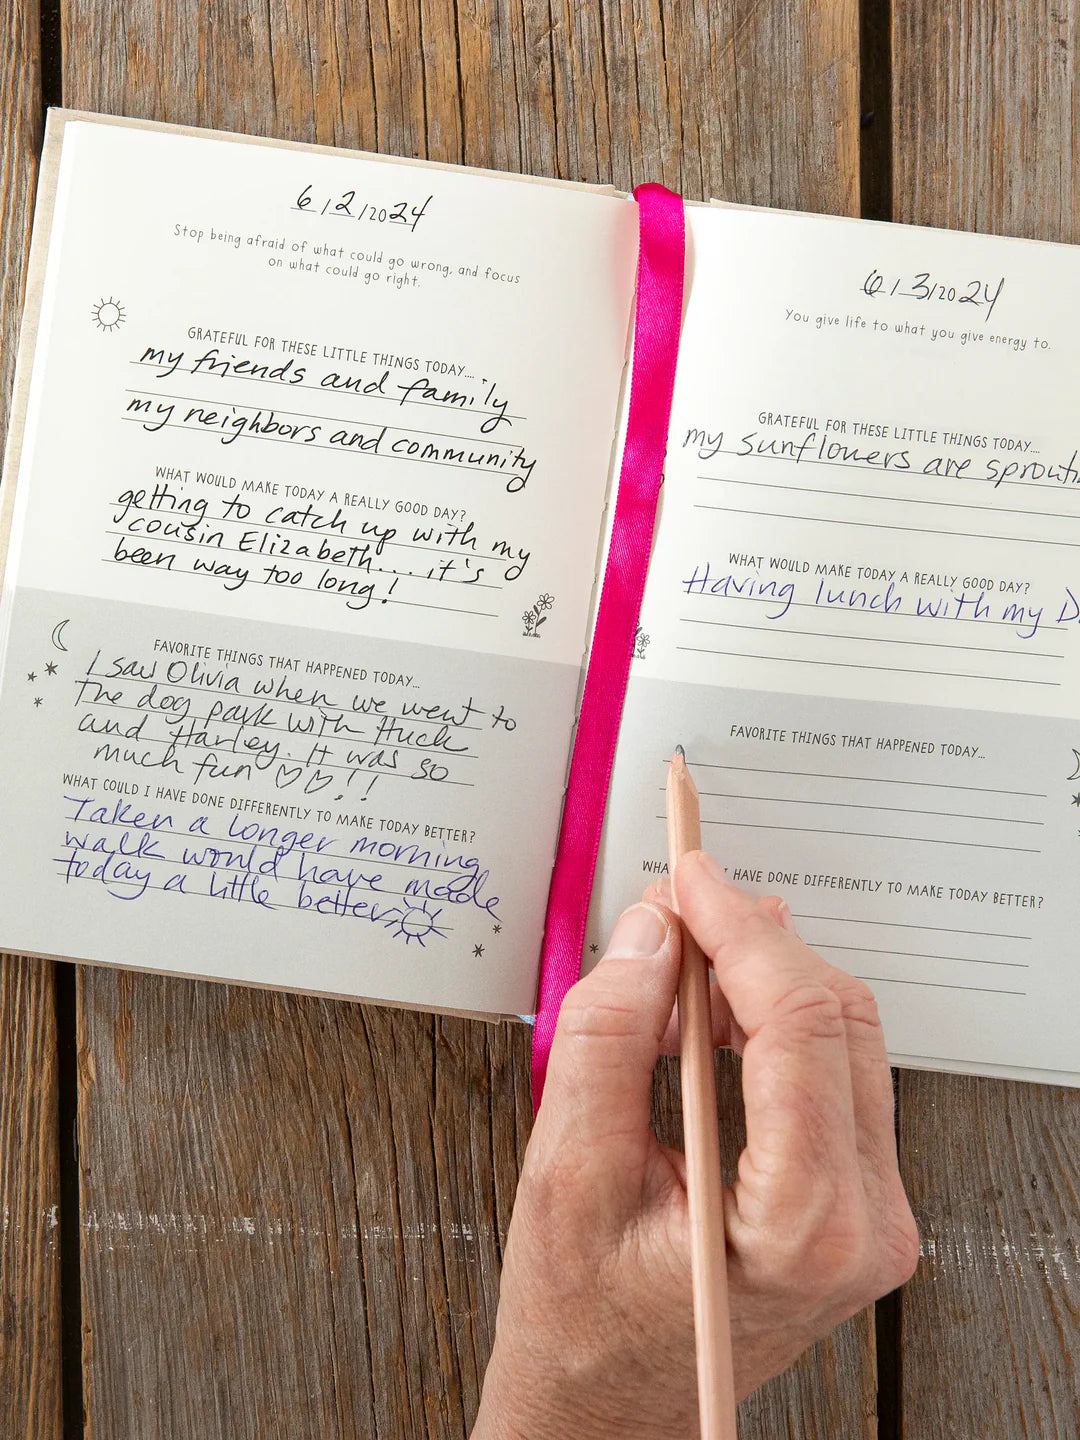 6/2/2024
Stop being afraid of what could go wrong, and focus
on what could go right.
GRATEFUL FOR THESE LITTLE THINGS TODAY....
my friends and family
my neighbors and community
WHAT WOULD MAKE TODAY A REALLY GOOD DAY?
getting to catch up with my
cousin Elizabeth.... it's
been way too long!
FAVORITE THINGS THAT HAPPENED TODAY...
I saw Olivia when we went to
the dog park with Huck
and Harley. It was so
much fun ♡♡!!
WHAT COULD I HAVE DONE DIFFERENTLY TO MAKE TODAY BETTER?
Taken a longer morning
walk would have made
today a little better
6/3/2024
You give life to what you give energy to.
GRATEFUL FOR THESE LITTLE THINGS TODAY....
my sunflowers are
WHAT WOULD MAKE TODAY A REALLY GOOD DAY?
Having lunch with my
FAVORITE THINGS THAT HAPPENED TODAY...
I HAVE DONE DIFFERENTLY TO MAKE TODAY BETTER?